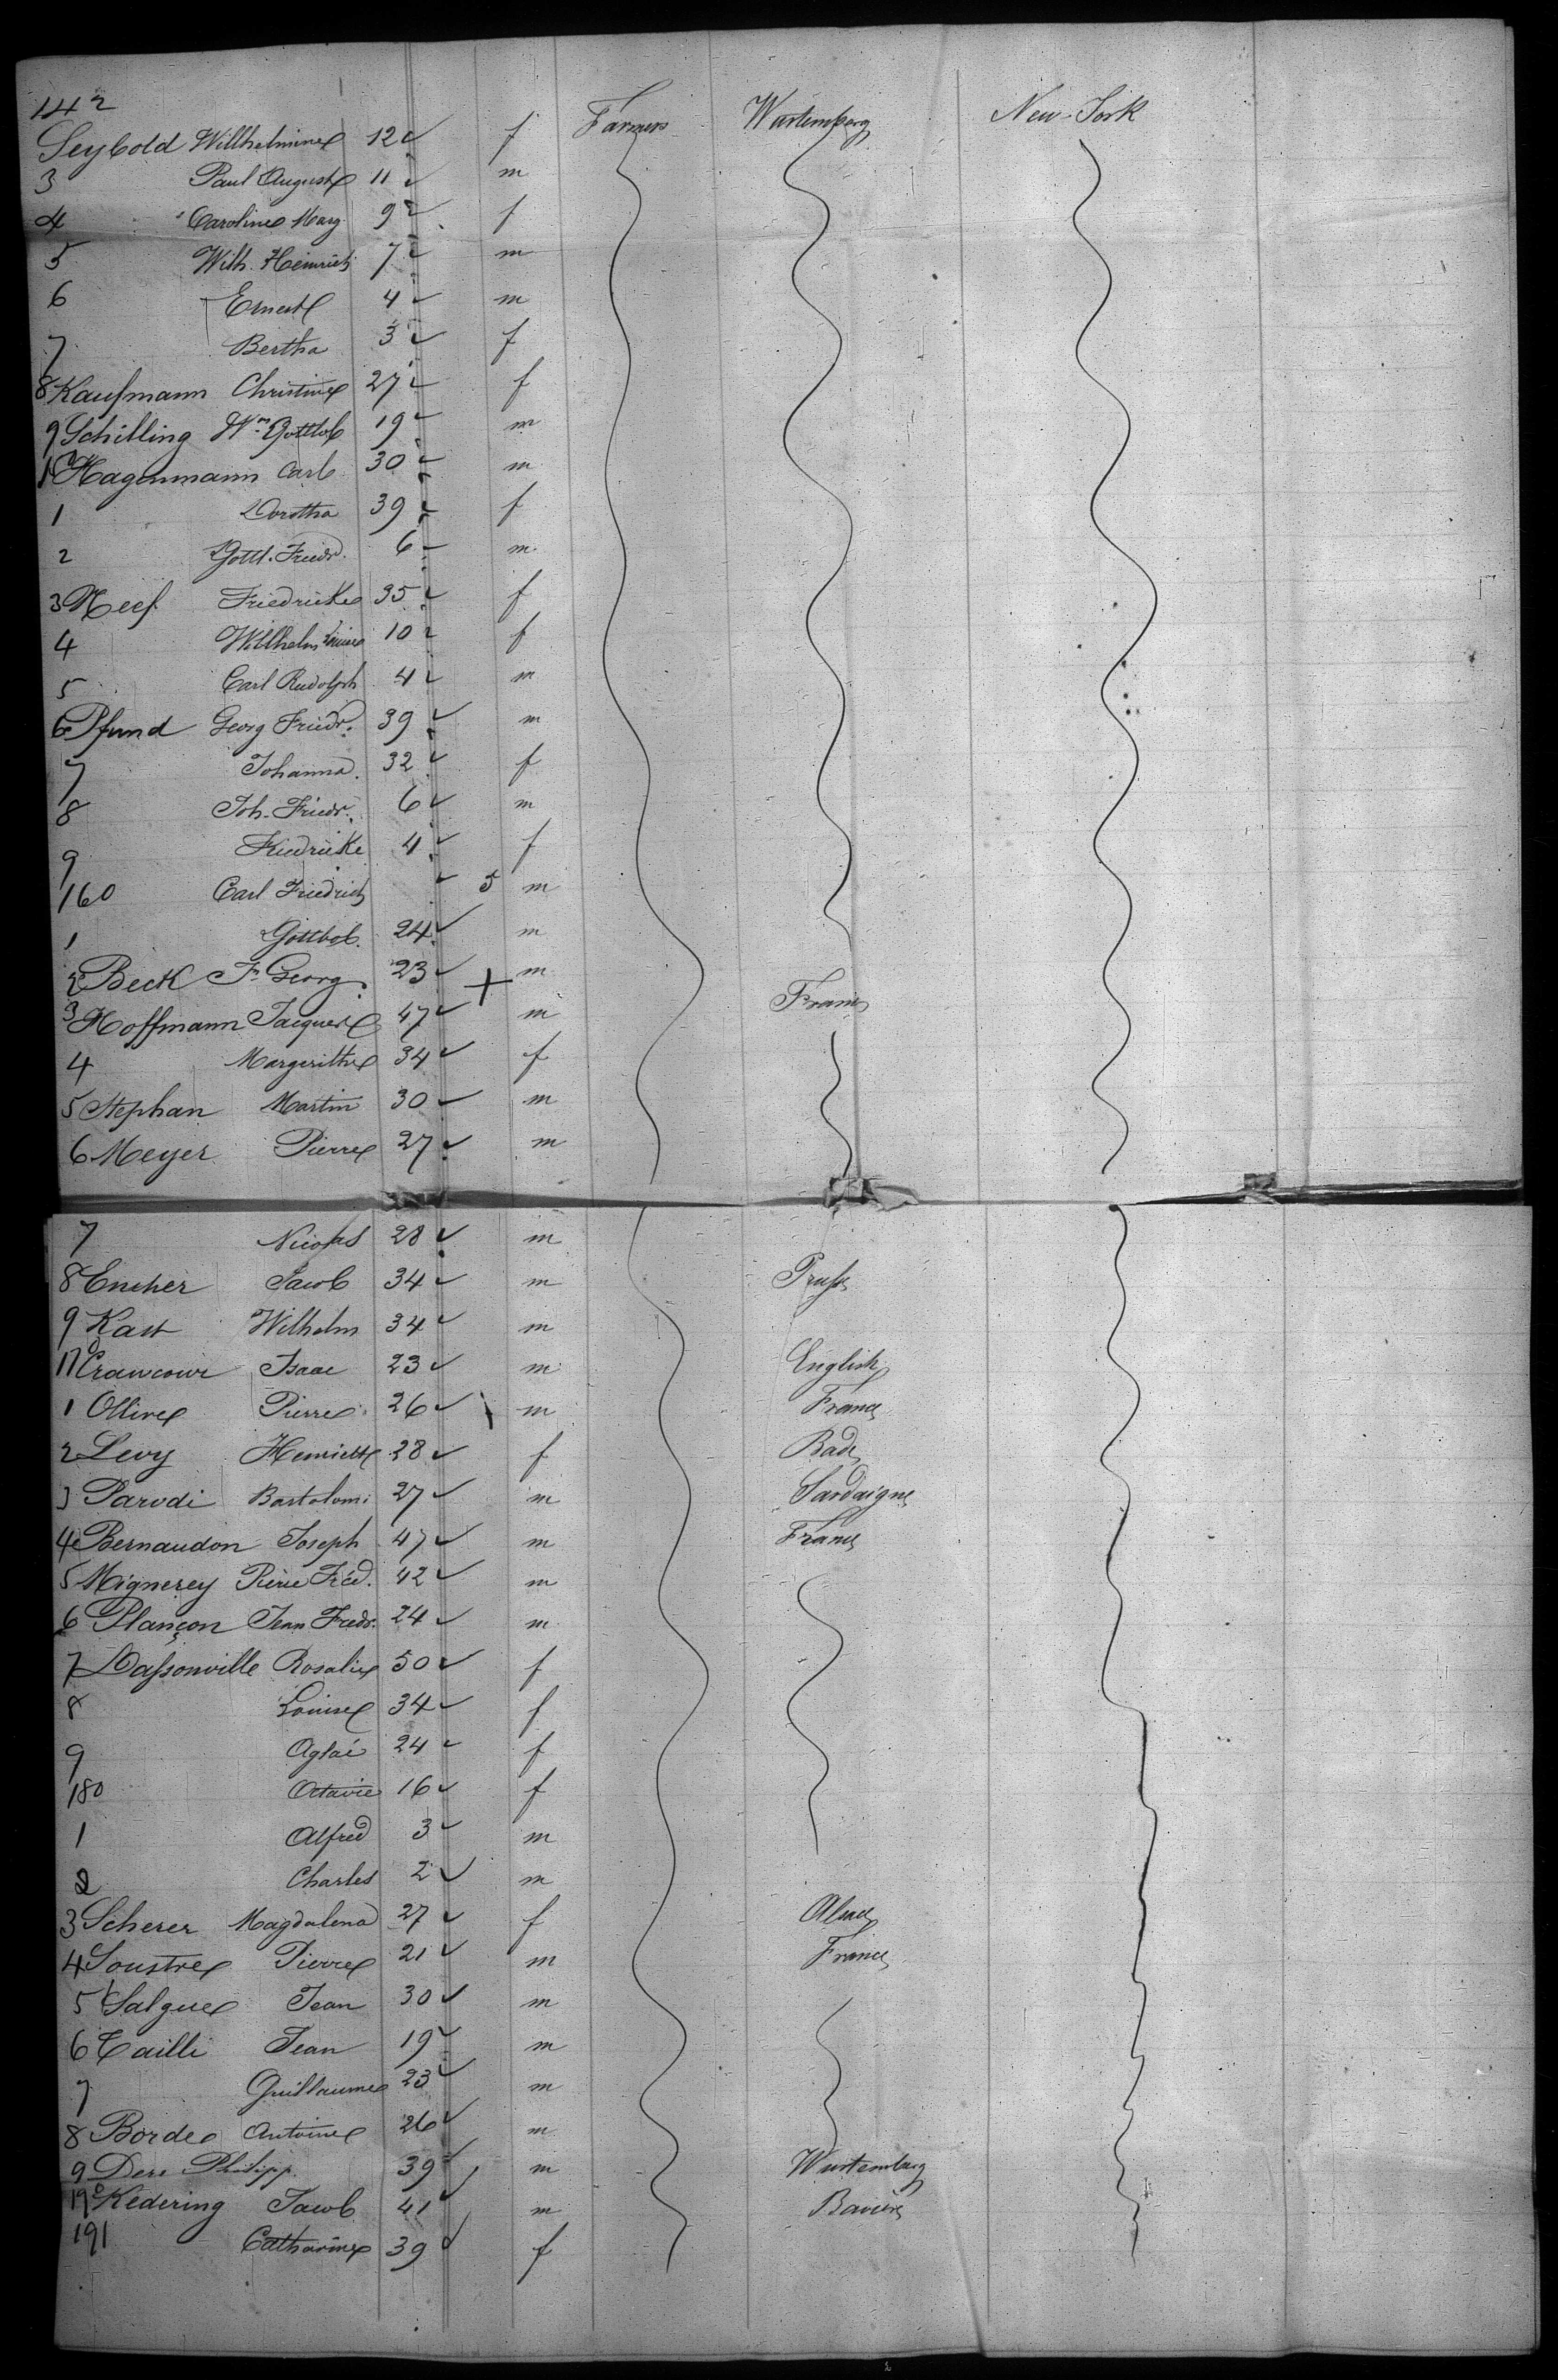 142 Farmers Wurtemberg New-York
Seybold Willhelmine 12 f
3 Paul August 11 m
4 Caroline Marg. 9 f
5 Wilh. Heinrich 7 m
6 Ernest 4 m
7 Bertha 3 f
8 Kaufmann Christine 27 f
9 Schilling Wm Gottlob 19 m
10 Hagenmann Carl 30 m
1 Dorothea 39 f
2 Gottl. Friedr. 6 m
3 Neef Friedricke 35 f
4 Willhelmine 10 f
5 Carl Rudolph 4 m
6 Pfund Georg Friedr. 39 m
7 Johanna 32 f
8 Joh. Friedr. 6 m
9 Friedricke 4 f
160 Carl Friedrich 5 m
1 Gottlob 24 m
2 Beck F. Georg 23 + m
3 Hoffmann Jacques 47 m France
4 Margerithe 34 f
5 Stephan Martin 30 m
6 Meyer Pierre 27 m
7 Nicolas 28 m
8 Encher Jacob 34 m Prusse
9 Kast Wilhelm 34 m
170 Crawcour Isaac 23 m English
1 Ollive Pierre 26 m France
2 Levy Henriette 28 f Bade
3 Parodi Bartolomi 27 m Sardaigne
4 Bernaudon Joseph 47 m France
5 Mignerey Pierre Fréd. 42 m
6 Plançon Jean Fredr. 24 m
7 Dassonville Rosalie 50 f
8 Louise 34 f
9 Aglaé 24 f
180 Octavie 16 f
1 Alfred 3 m
2 Charles 2 m
3 Scherer Magdalena 27 f Alsace
4 Soustre Pierre 21 m France
5 Salgue Jean 30 m
6 Cailli Jean 19 m
7 Guillaume 23 m
8 Borde Antoine 26 m
9 Dere Philipp 39 m Wurtemberg
190 Kedering Jacob 41 m Baviere
191 Catharine 39 f